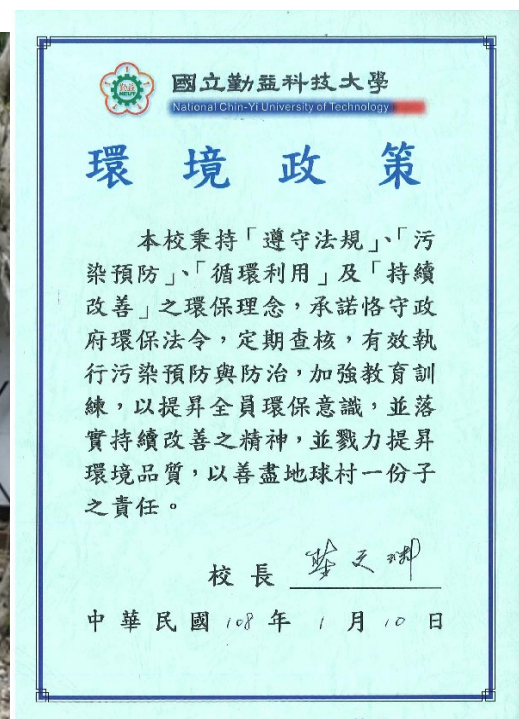 勤益
NCUT
國立勤益科技大學
National Chin-Yi University of Technology
環境政策
本校秉持「遵守法規」、「污
染預防」、「循環利用」及「持續
改善」之環保理念，承諾恪守政
府環保法令，定期查核，有效執
行污染預防與防治，加強教育訓
練，以提昇全員環保意識，並落
實持續改善之精神，並戮力提昇
環境品質，以善盡地球村一份子
之責任。
校長
中華民國 108 年 1 月 10 日